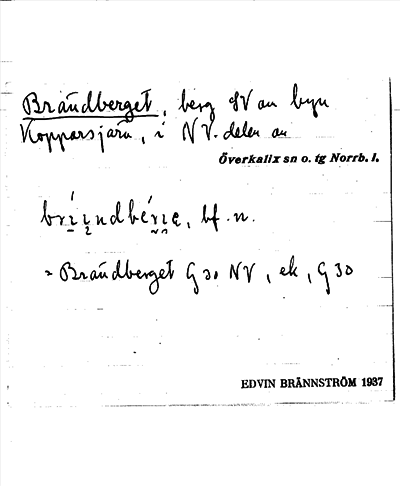 Brändberget, berg SV om byn
Kopparsjärn, i NV. delen av
Överkalix sn o. tg Norrb. l.
bf. n.
= Brändberget G 30 NV, ek, G 30
EDVIN BRÄNNSTRÖM 1937